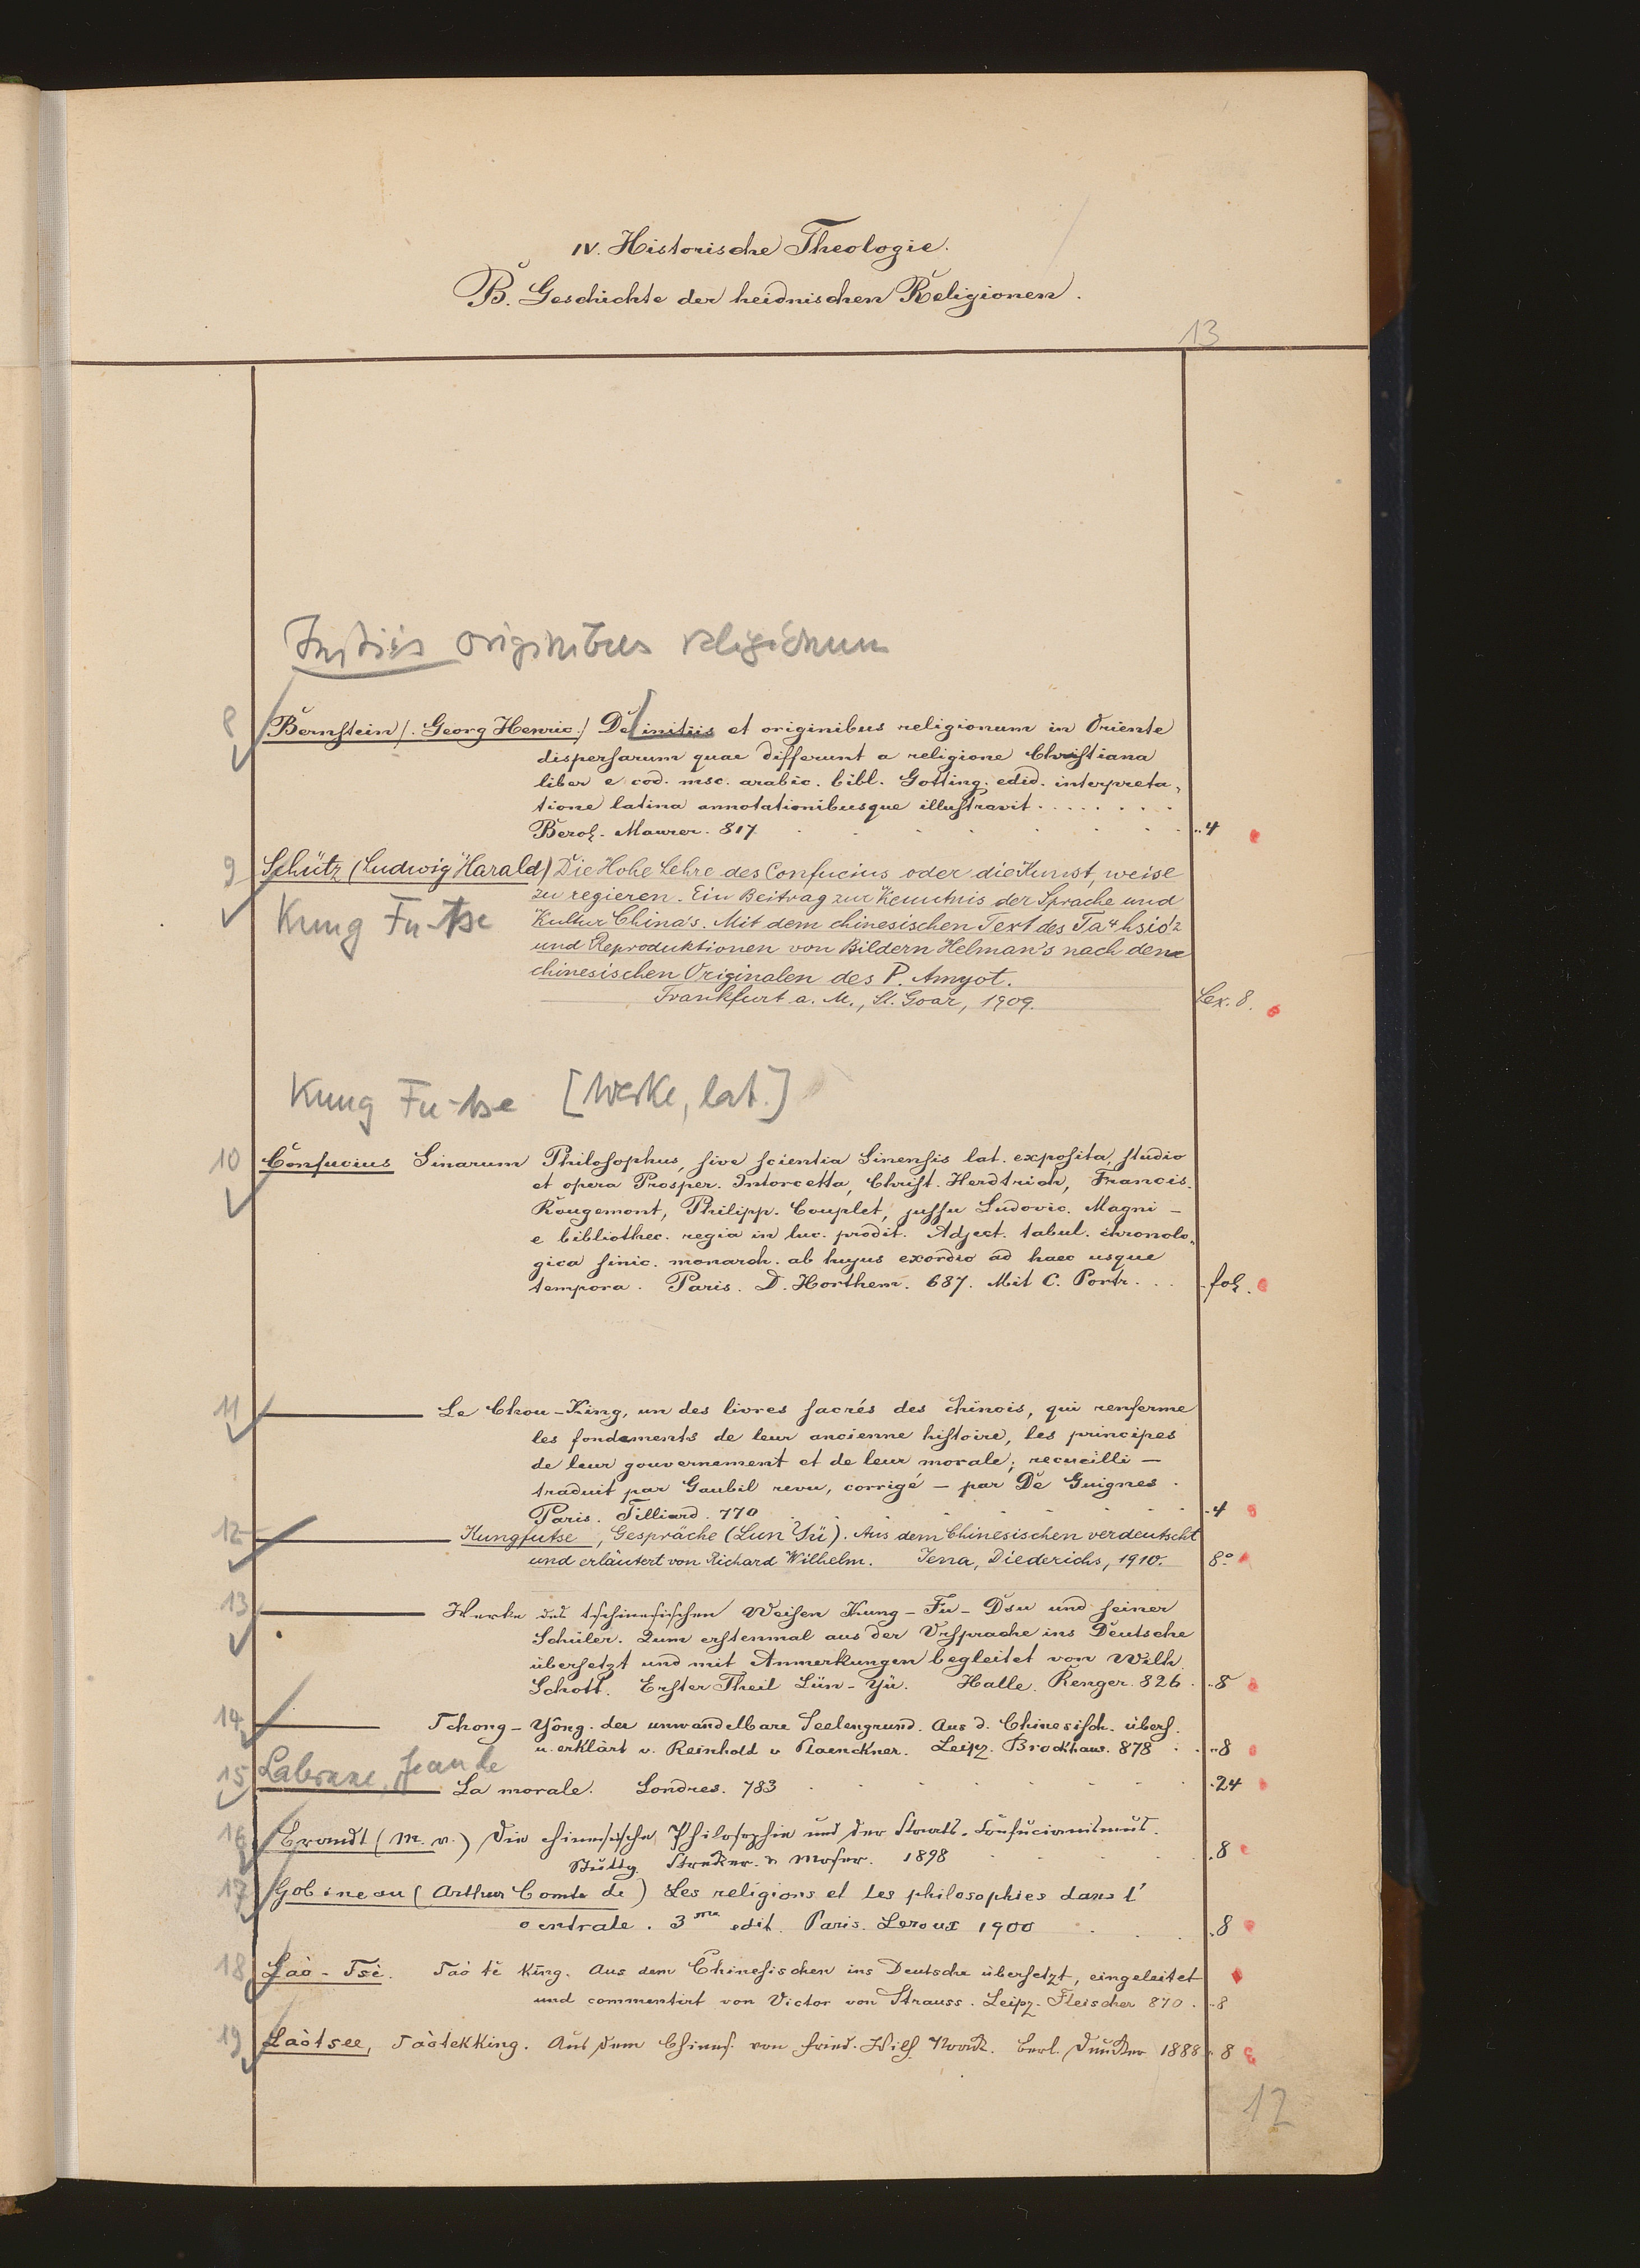 IV. Historische Theologie.
B. Geschichte der heidnischen Religionen.
13
Initiis originibus religionum
8 Bernstein /. Georg Henric./ De initiis et originibus religionum in Oriente
dispersarum quae differunt a religione Christiana
liber e cod. msc. arabic. bibl. Gotting. edid. interpreta-
tione latina annotationibusque illustravit . . . . . . .
Berol. Maurer. 817 . . . . . . . 4
9 Schütz (Ludwig Harald) Die Hohe Lehre des Confucius oder die Kunst, weise
zu regieren. Ein Beitrag zur Kenntnis der Sprache und
Kung Fu-tse Kultur China's. Mit dem chinesischen Text des Ta⁴ hsio²
und Reproduktionen von Bildern Helman's nach den
chinesischen Originalen des P. Amyot.
Frankfurt a. M., St. Goar, 1909. Lex. 8.
Kung Fu-tse [Werke, lat.]
10 Confucius Sinarum Philosophus, sive scientia Sinensis lat. exposita, studio
et opera Prosper. Intorcetta, Christ. Herdtrich, Francis.
Rougemont, Philipp. Couplet, jussu Ludovic. Magni –
e bibliothec. regia in luc. prodit. Adject. tabul. chronolo-
gica sinic. monarch. ab hujus exordio ad haec usque
tempora. Paris. D. Horthem. 687. Mit C. Portr. . . . fol.
11 ——— Le Chou-King, un des livres sacrés des chinois, qui renferme
les fondements de leur ancienne histoire, les principes
de leur gouvernement et de leur morale; recueilli –
traduit par Gaubil revu, corrigé – par De Guignes .
Paris. Tilliard. 770 . . . . . . . 4
12 ——— Kungfutse, Gespräche (Lun Yü). Aus dem Chinesischen verdeutscht
und erläutert von Richard Wilhelm. Jena, Diederichs, 1910. 8°
13 ——— Werke des tschinesischen Weisen Kung-Fu-Dsu und seiner
Schüler. Zum erstenmal aus der Ursprache ins Deutsche
übersetzt und mit Anmerkungen begleitet von Wilh.
Schott. Erster Theil Lün-Yü. Halle. Renger. 826. . 8
14 ——— Tchong-Yông. der unwandelbare Seelengrund. Aus d. Chinesisch. übers.
u. erklärt v. Reinhold v Plaenckner. Leipz. Brockhaus. 878 . . 8
Jean de
15 ——— La morale. Londres. 783 . . . . . . . 24
16 Brandt (M. v.) Die chinesische Philosophie und der Staats-Confucianismus.
Stuttg. Strecker & Moser. 1898 . . . . . 8
17 Gobineau (Arthur Comte de) Les religions et les philosophies dans l'
centrale. 3me edit. Paris. Leroux 1900 . . . 8
18 Laò-Tsè. Taò tĕ kīng. Aus dem Chinesischen ins Deutsche übersetzt, eingeleitet
und commentirt von Victor von Strauss. Leipz. Fleischer 870. . 8
19 Laòtsee, Taòtekking. Aus dem Chines. von Fried. Wilh. Noack. Berl. Duncker 1888. 8
12